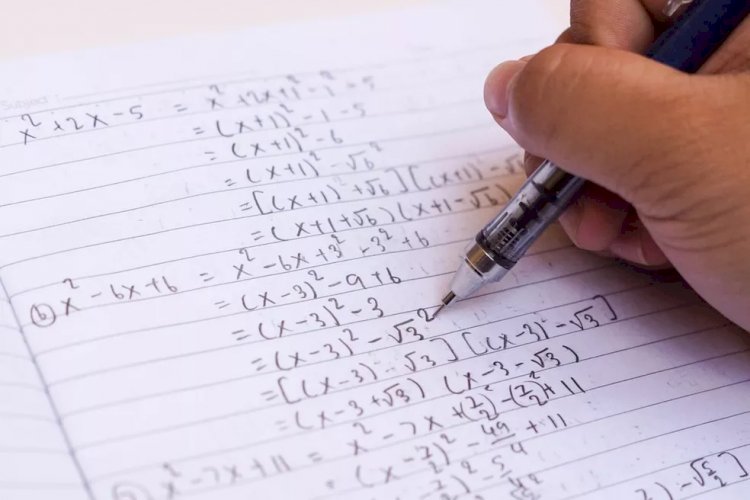 Subject :
x² + 2x - 5 = x² + 2x + 1² - 1² - 5
= (x+1)² - 1 - 5
= (x+1)² - 6
= (x+1)² - √6²
= [(x+1) + √6] [(x+1) - √6
= (x+1+√6) (x+1-√6)
(b) x² - 6x + 6 = x² - 6x + 3² - 3² + 6
= (x-3)² - 9 + 6
= (x-3)² - 3
= (x-3)² - √3²
= [(x-3) - √3] [(x-3) - √3]
= (x-3+√3) (x-3-√3)
x² - 7x + 11 = x² - 7x + (7/2)² - (7/2)² + 11
= (x - 7/2)² - 49/4 + 11